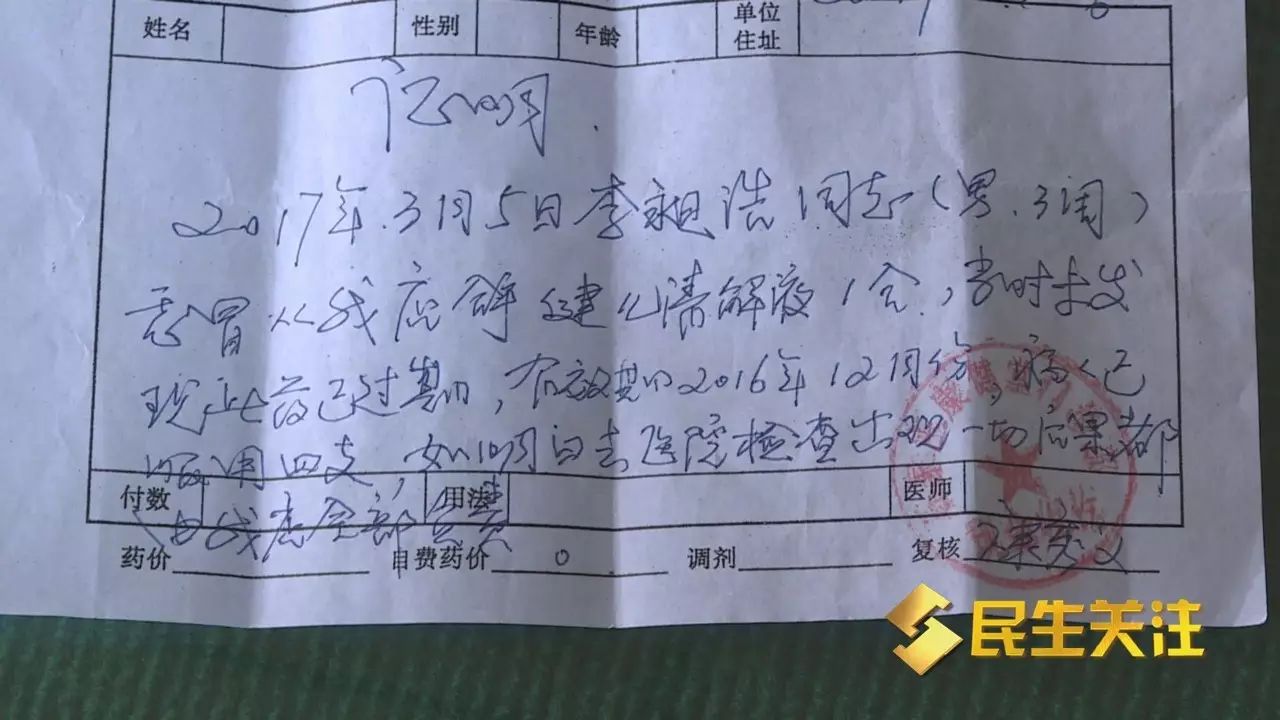 姓名 性别 年龄 单位住址
证明
2017年.3月5日李昶浩同志(男.3周)
感冒从我所拿健儿清解液1合,当时未发
现此药已过期,有效期2016年12月份,病人已
服用四支,如明白去医院检查出现一切后果都
付数 用法 医师
由我所全部负责
药价 自费药价 0 调剂 复核
民生关注